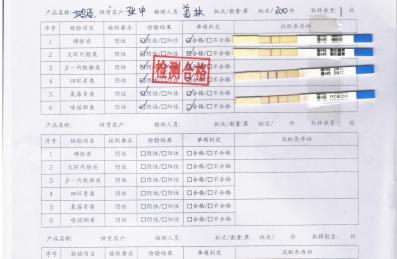 产品名称: 供货农户: 张中 检测人员: 批次/数量:第 批次/300 件 取样数量: 1 枚
序号 检验项目 检测要求 检验结果 单项判定 试纸条存档
1 磺胺类 阴性 ☑阴性/□阳性 ☑合格/□不合格
2 大环内酯类 阴性 ☑阴性/□阳性 ☑合格/□不合格
3 β—内酰胺类 阴性 阴性/□阳性 ☑合格/□不合格
4 四环素类 阴性 合格/□不合格
5 氯霉素类 阴性 ☑阴性/□阳性 ☑合格/□不合格
6 喹诺酮类 阴性 ☑阴性/□阳性 ☑合格/□不合格
检测合格
产品名称: 供货农户: 检测人员: 批次/数量:第 批次/ 件 取样数量: 枚
序号 检验项目 检测要求 检验结果 单项判定 试纸条存档
1 磺胺类 阴性 □阴性/□阳性 □合格/□不合格
2 大环内酯类 阴性 □阴性/□阳性 □合格/□不合格
3 β—内酰胺类 阴性 □阴性/□阳性 □合格/□不合格
4 四环素类 阴性 □阴性/□阳性 □合格/□不合格
5 氯霉素类 阴性 □阴性/□阳性 □合格/□不合格
6 喹诺酮类 阴性 □阴性/□阳性 □合格/□不合格
产品名称: 供货农户: 检测人员: 批次/数量:第 批次/ 件 取样数量: 枚
序号 检验项目 检测要求 检验结果 单项判定 试纸条存档